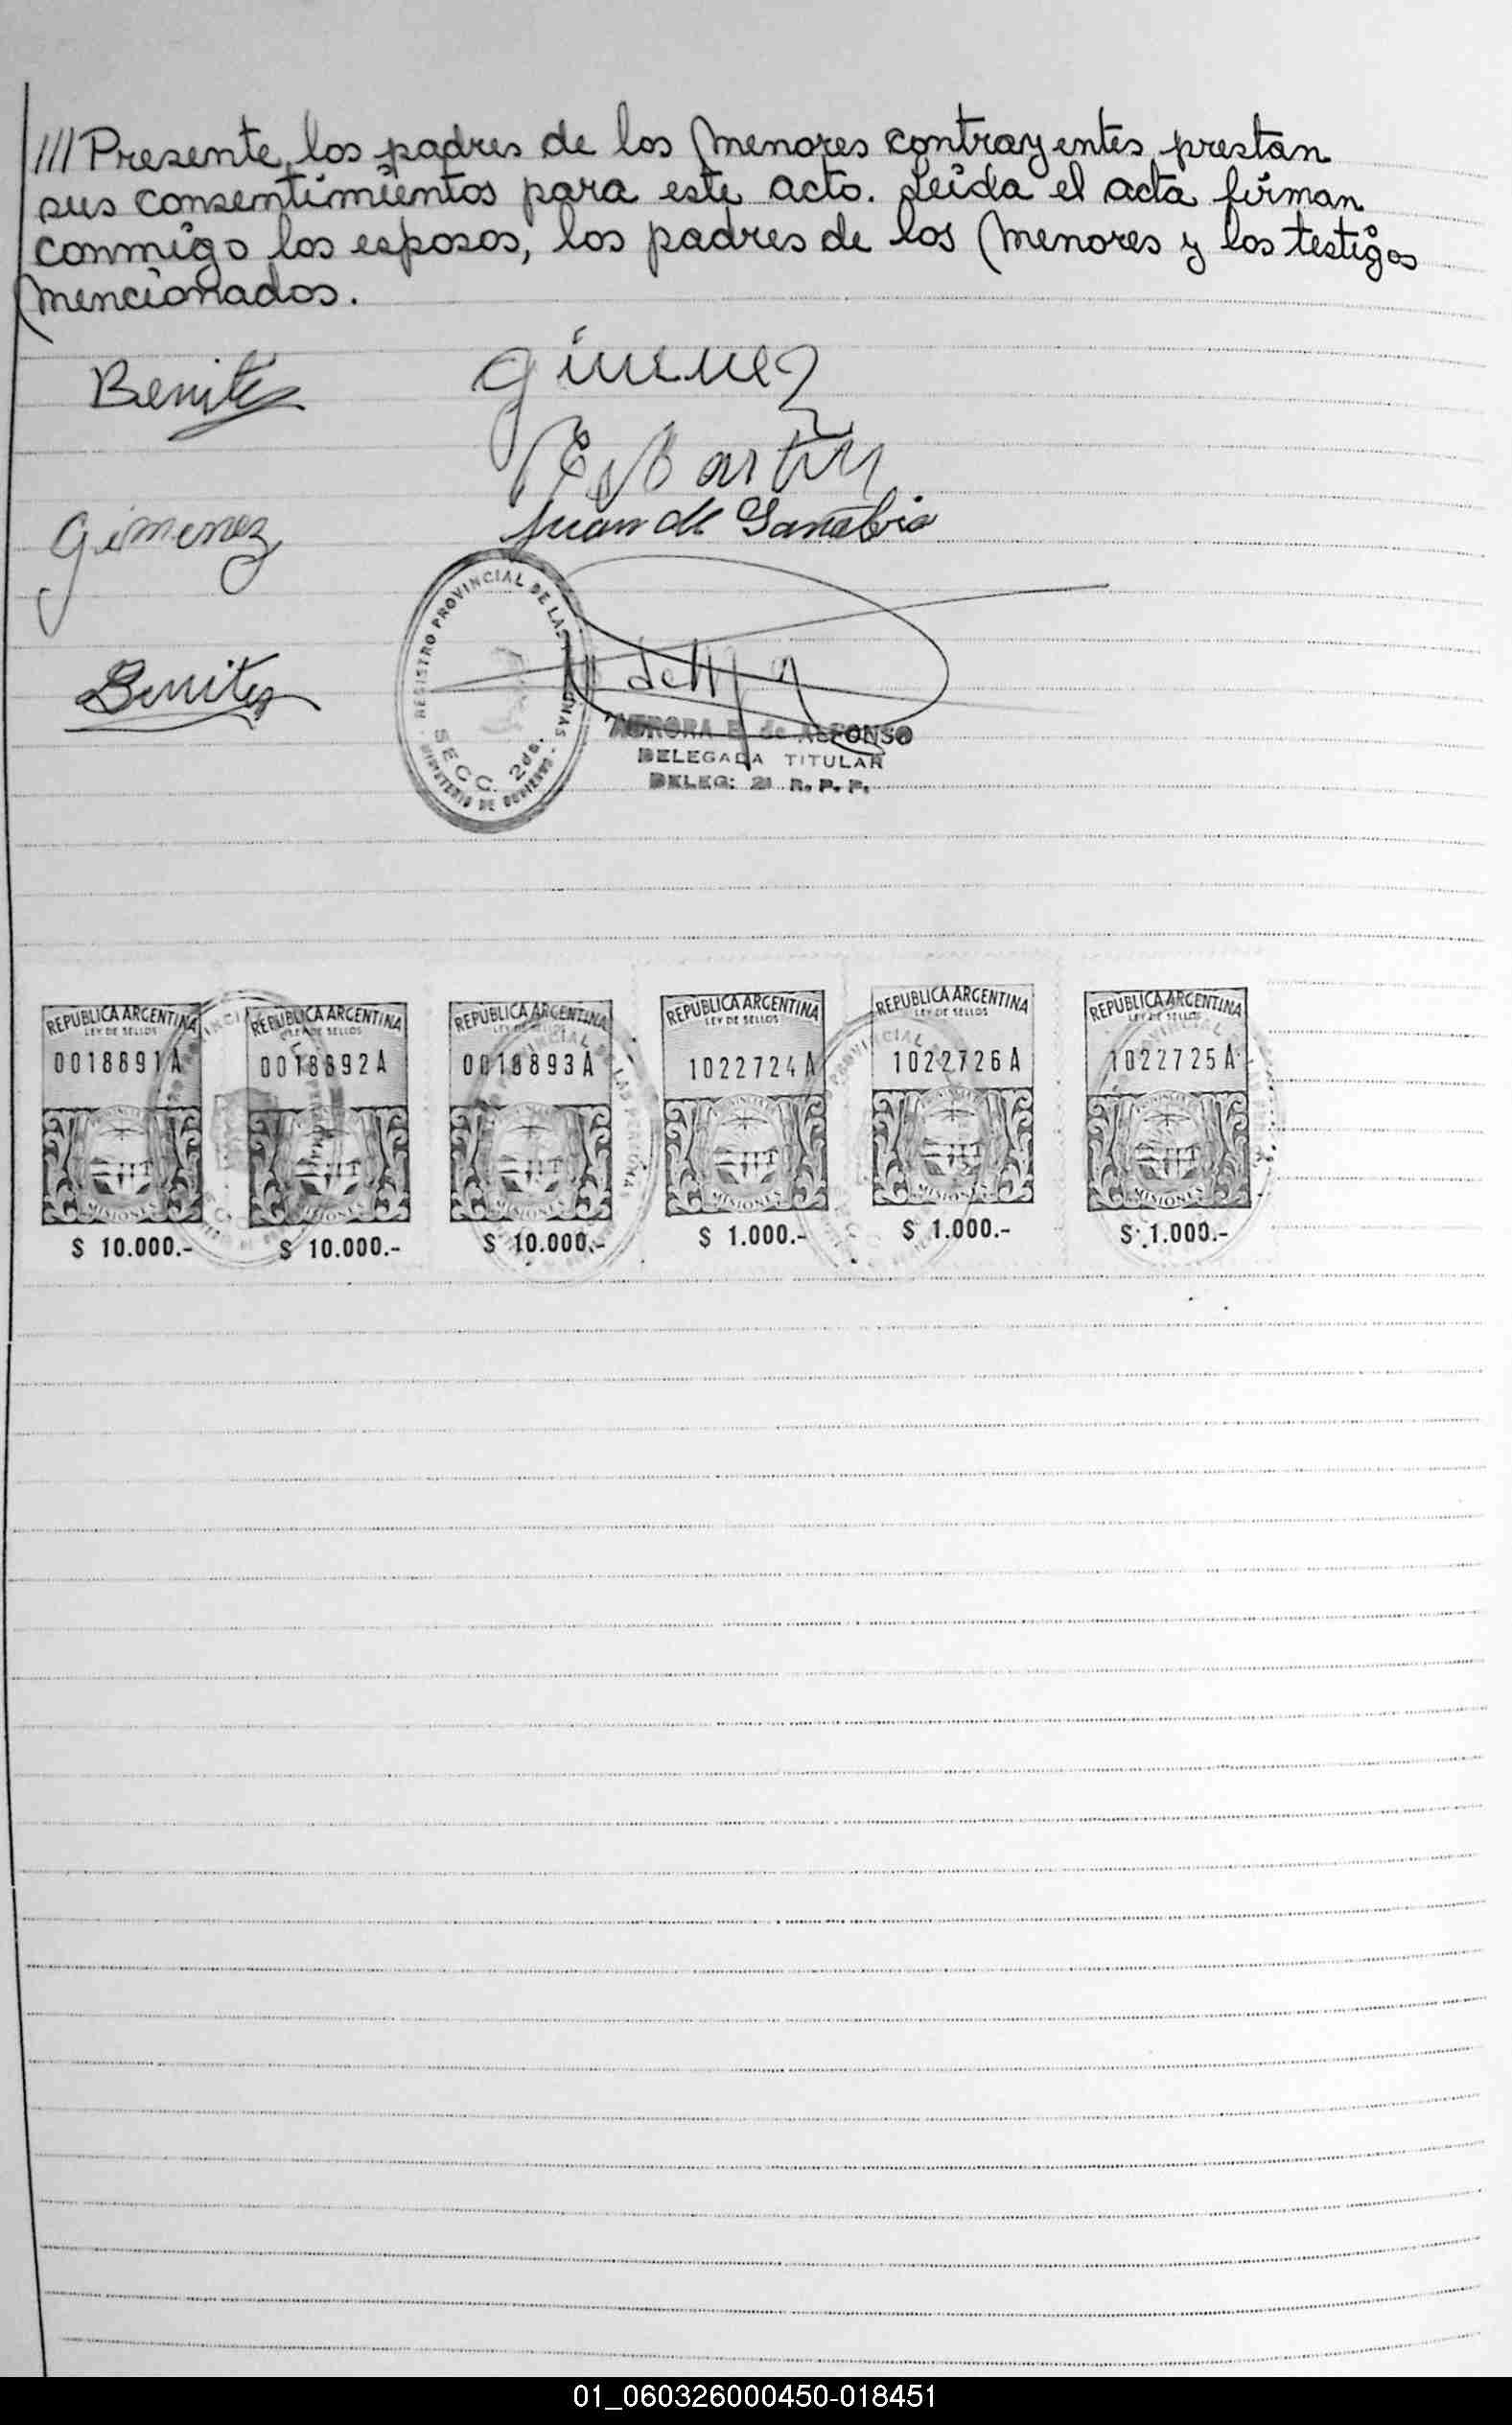 ///Presente, los padres de los menores contrayentes, prestan
sus consentimientos para este acto. Leida el acta firman
conmigo los esposos, los padres de los menores y los testigos
mencionados.
Benitez
Gimenez
Gimenez
Juan de Sanabria
Benitez
REGISTRO PROVINCIAL DE LAS PERSONAS
SECC. 2da.
MINISTERIO DE GOBIERNO
AURORA E. de ALFONSO
DELEGADA TITULAR
DELEG: 2 R. P. P.
REPUBLICA ARGENTINA
LEY DE SELLOS
0018891 A
MISIONES
$ 10.000.-
REPUBLICA ARGENTINA
LEY DE SELLOS
0018892 A
MISIONES
$ 10.000.-
REPUBLICA ARGENTINA
LEY DE SELLOS
0018893 A
MISIONES
$ 10.000.-
REPUBLICA ARGENTINA
LEY DE SELLOS
1022724 A
MISIONES
$ 1.000.-
REPUBLICA ARGENTINA
LEY DE SELLOS
1022726 A
MISIONES
$ 1.000.-
REPUBLICA ARGENTINA
LEY DE SELLOS
1022725 A
MISIONES
$ 1.000.-
01_060326000450-018451